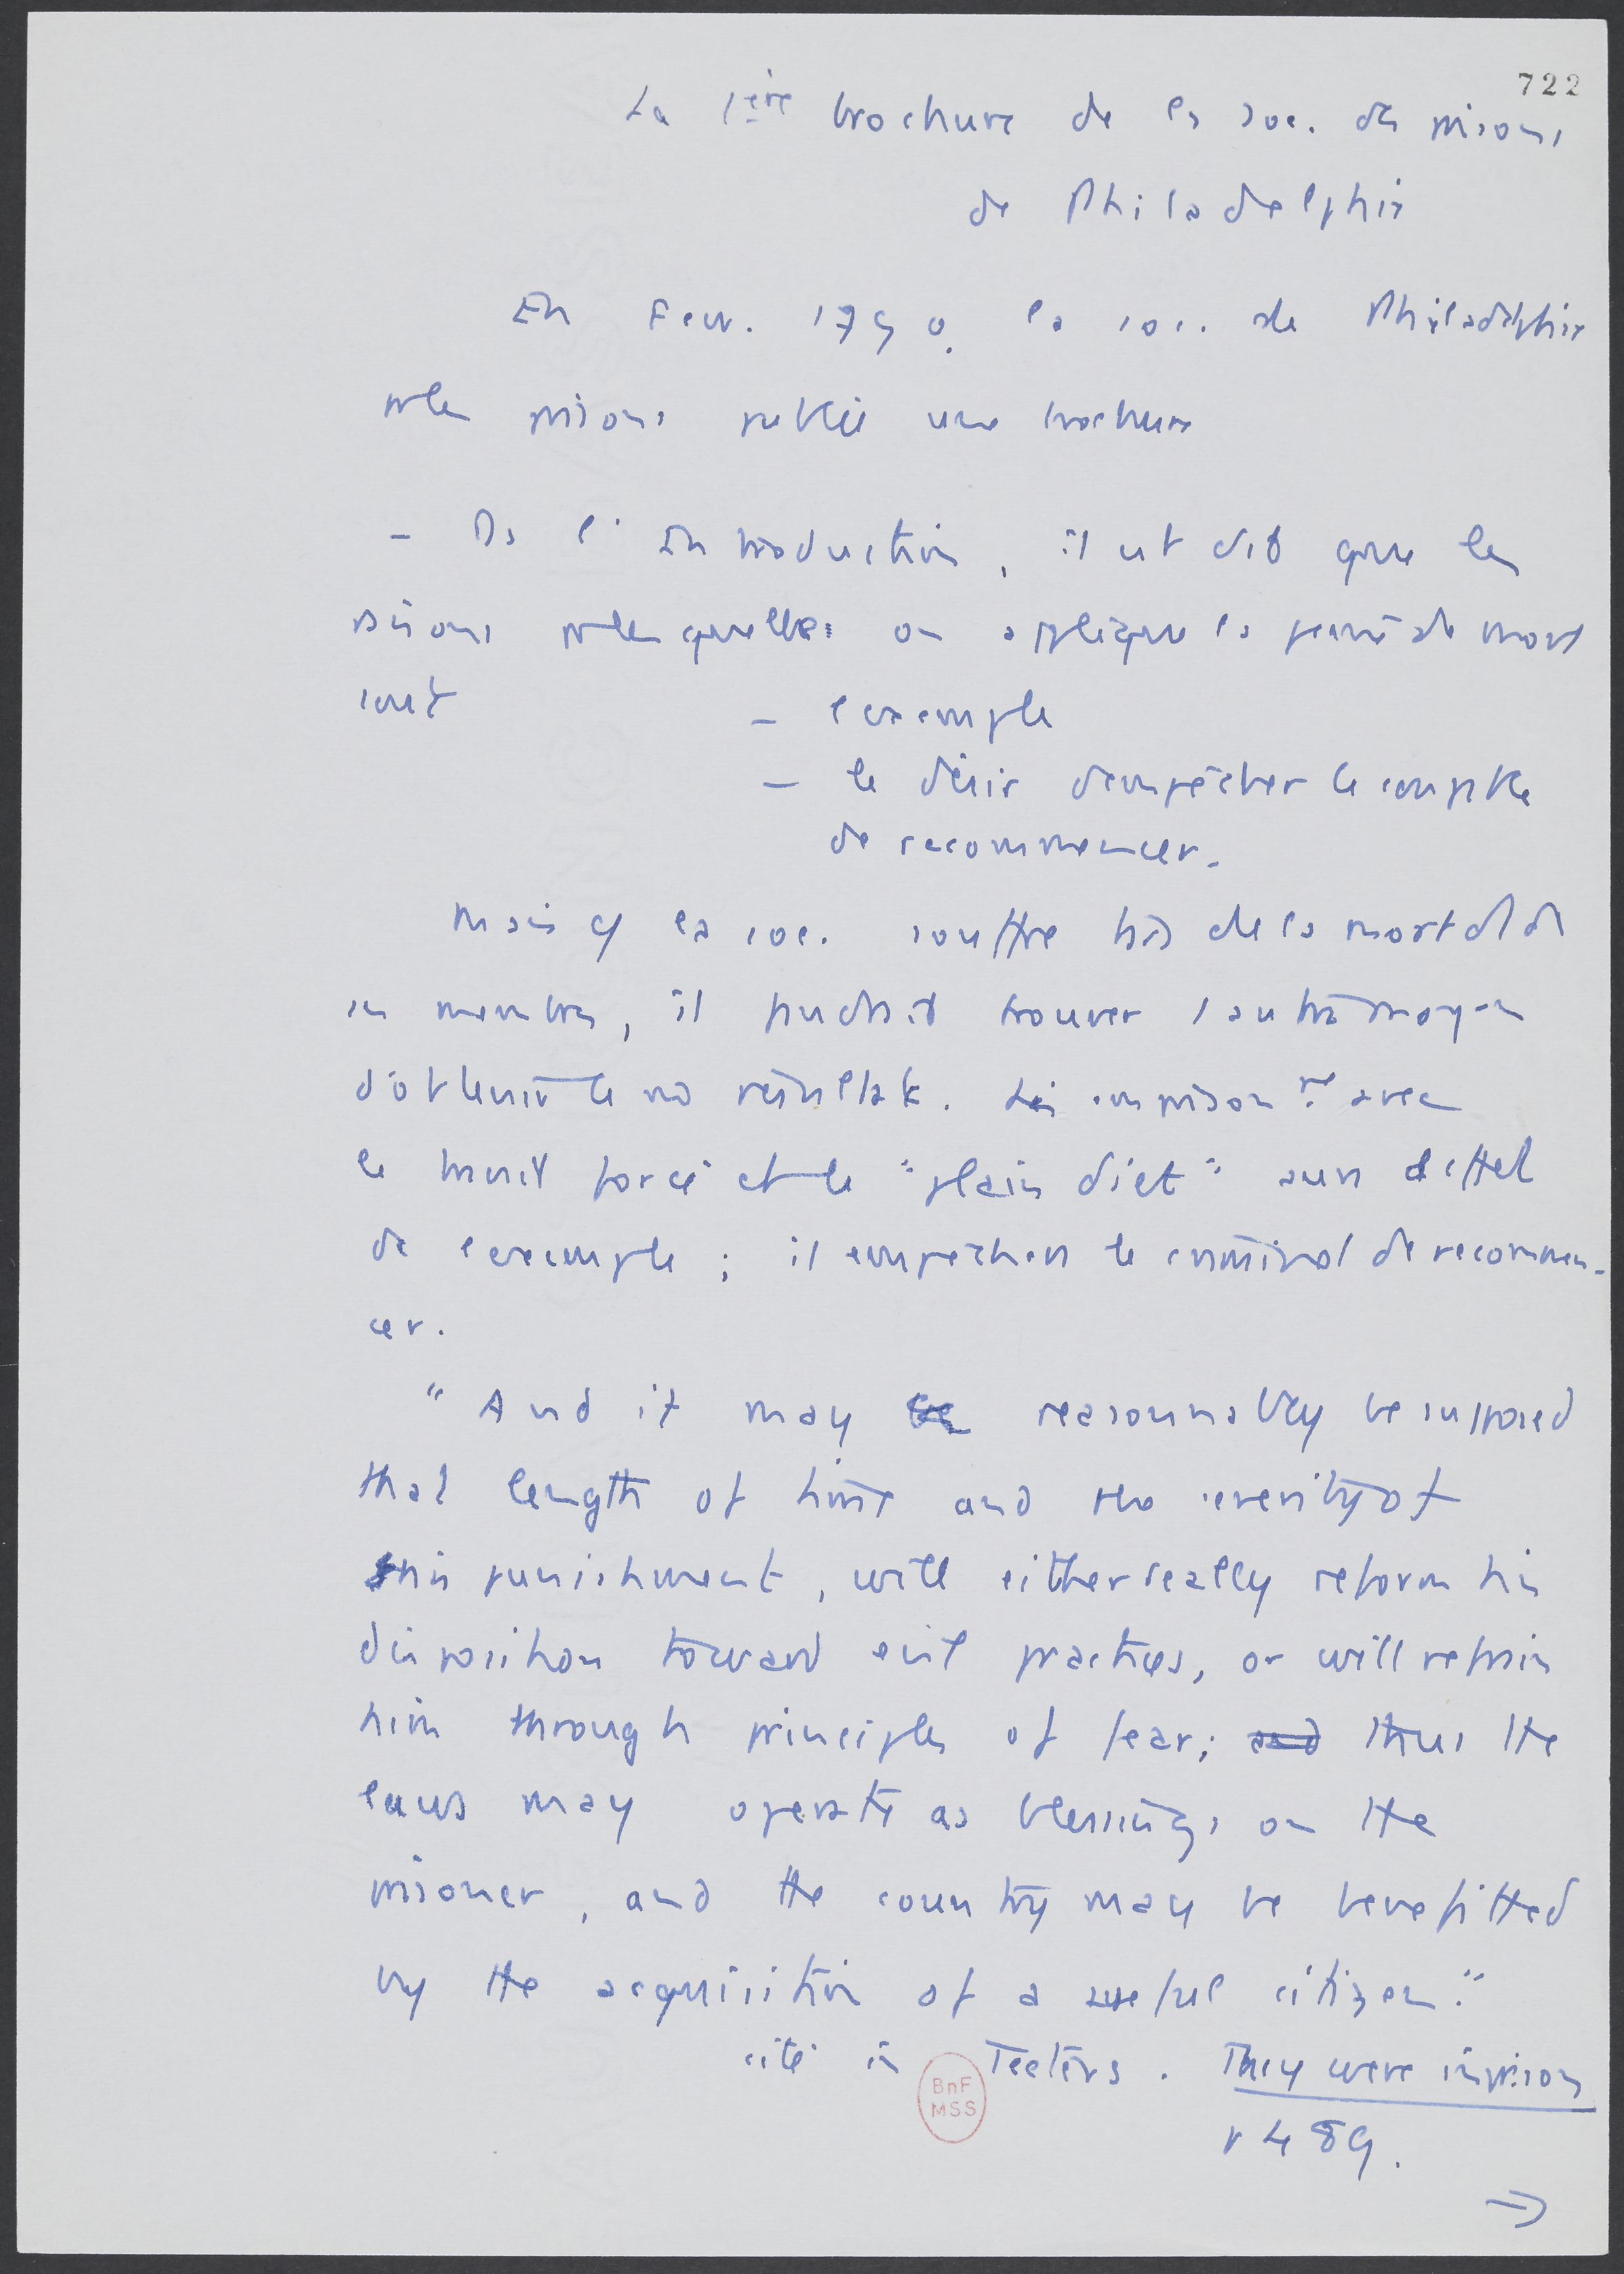 722
La 1ère brochure de la soc. des prisons
de Philadelphie
En Fevr. 1790, la soc. de Philadelphie
pr les prisons publie une brochure
- Ds l'Introduction, il est dit que les
raisons pr lesquelles on applique la peine de mort
sont - l'exemple
- le désir d'empêcher le coupable
de recommencer.
Mais cô la soc. souffre très de la mort d'1 de
ses membres, il faudrait trouver 1 autre moyen
d'obtenir le mê résultat. Les emprisonnt avec
le travail forcé et le "plain diet" aura d'effet
de l'exemple ; il empêchera le criminel de recommen-
cer.
"And it may be reasonnably be supposed
that length of time and the severity of
this punishment, will either really reform his
disposition toward evil practices, or will refrain
him through principles of fear; and thus the
laws may operate as blessings on the
prisoner, and the country may be benefitted
by the acquisition of a useful citizen."
cité in Teeters. They were in prison
p 489.
→
BnF
MSS